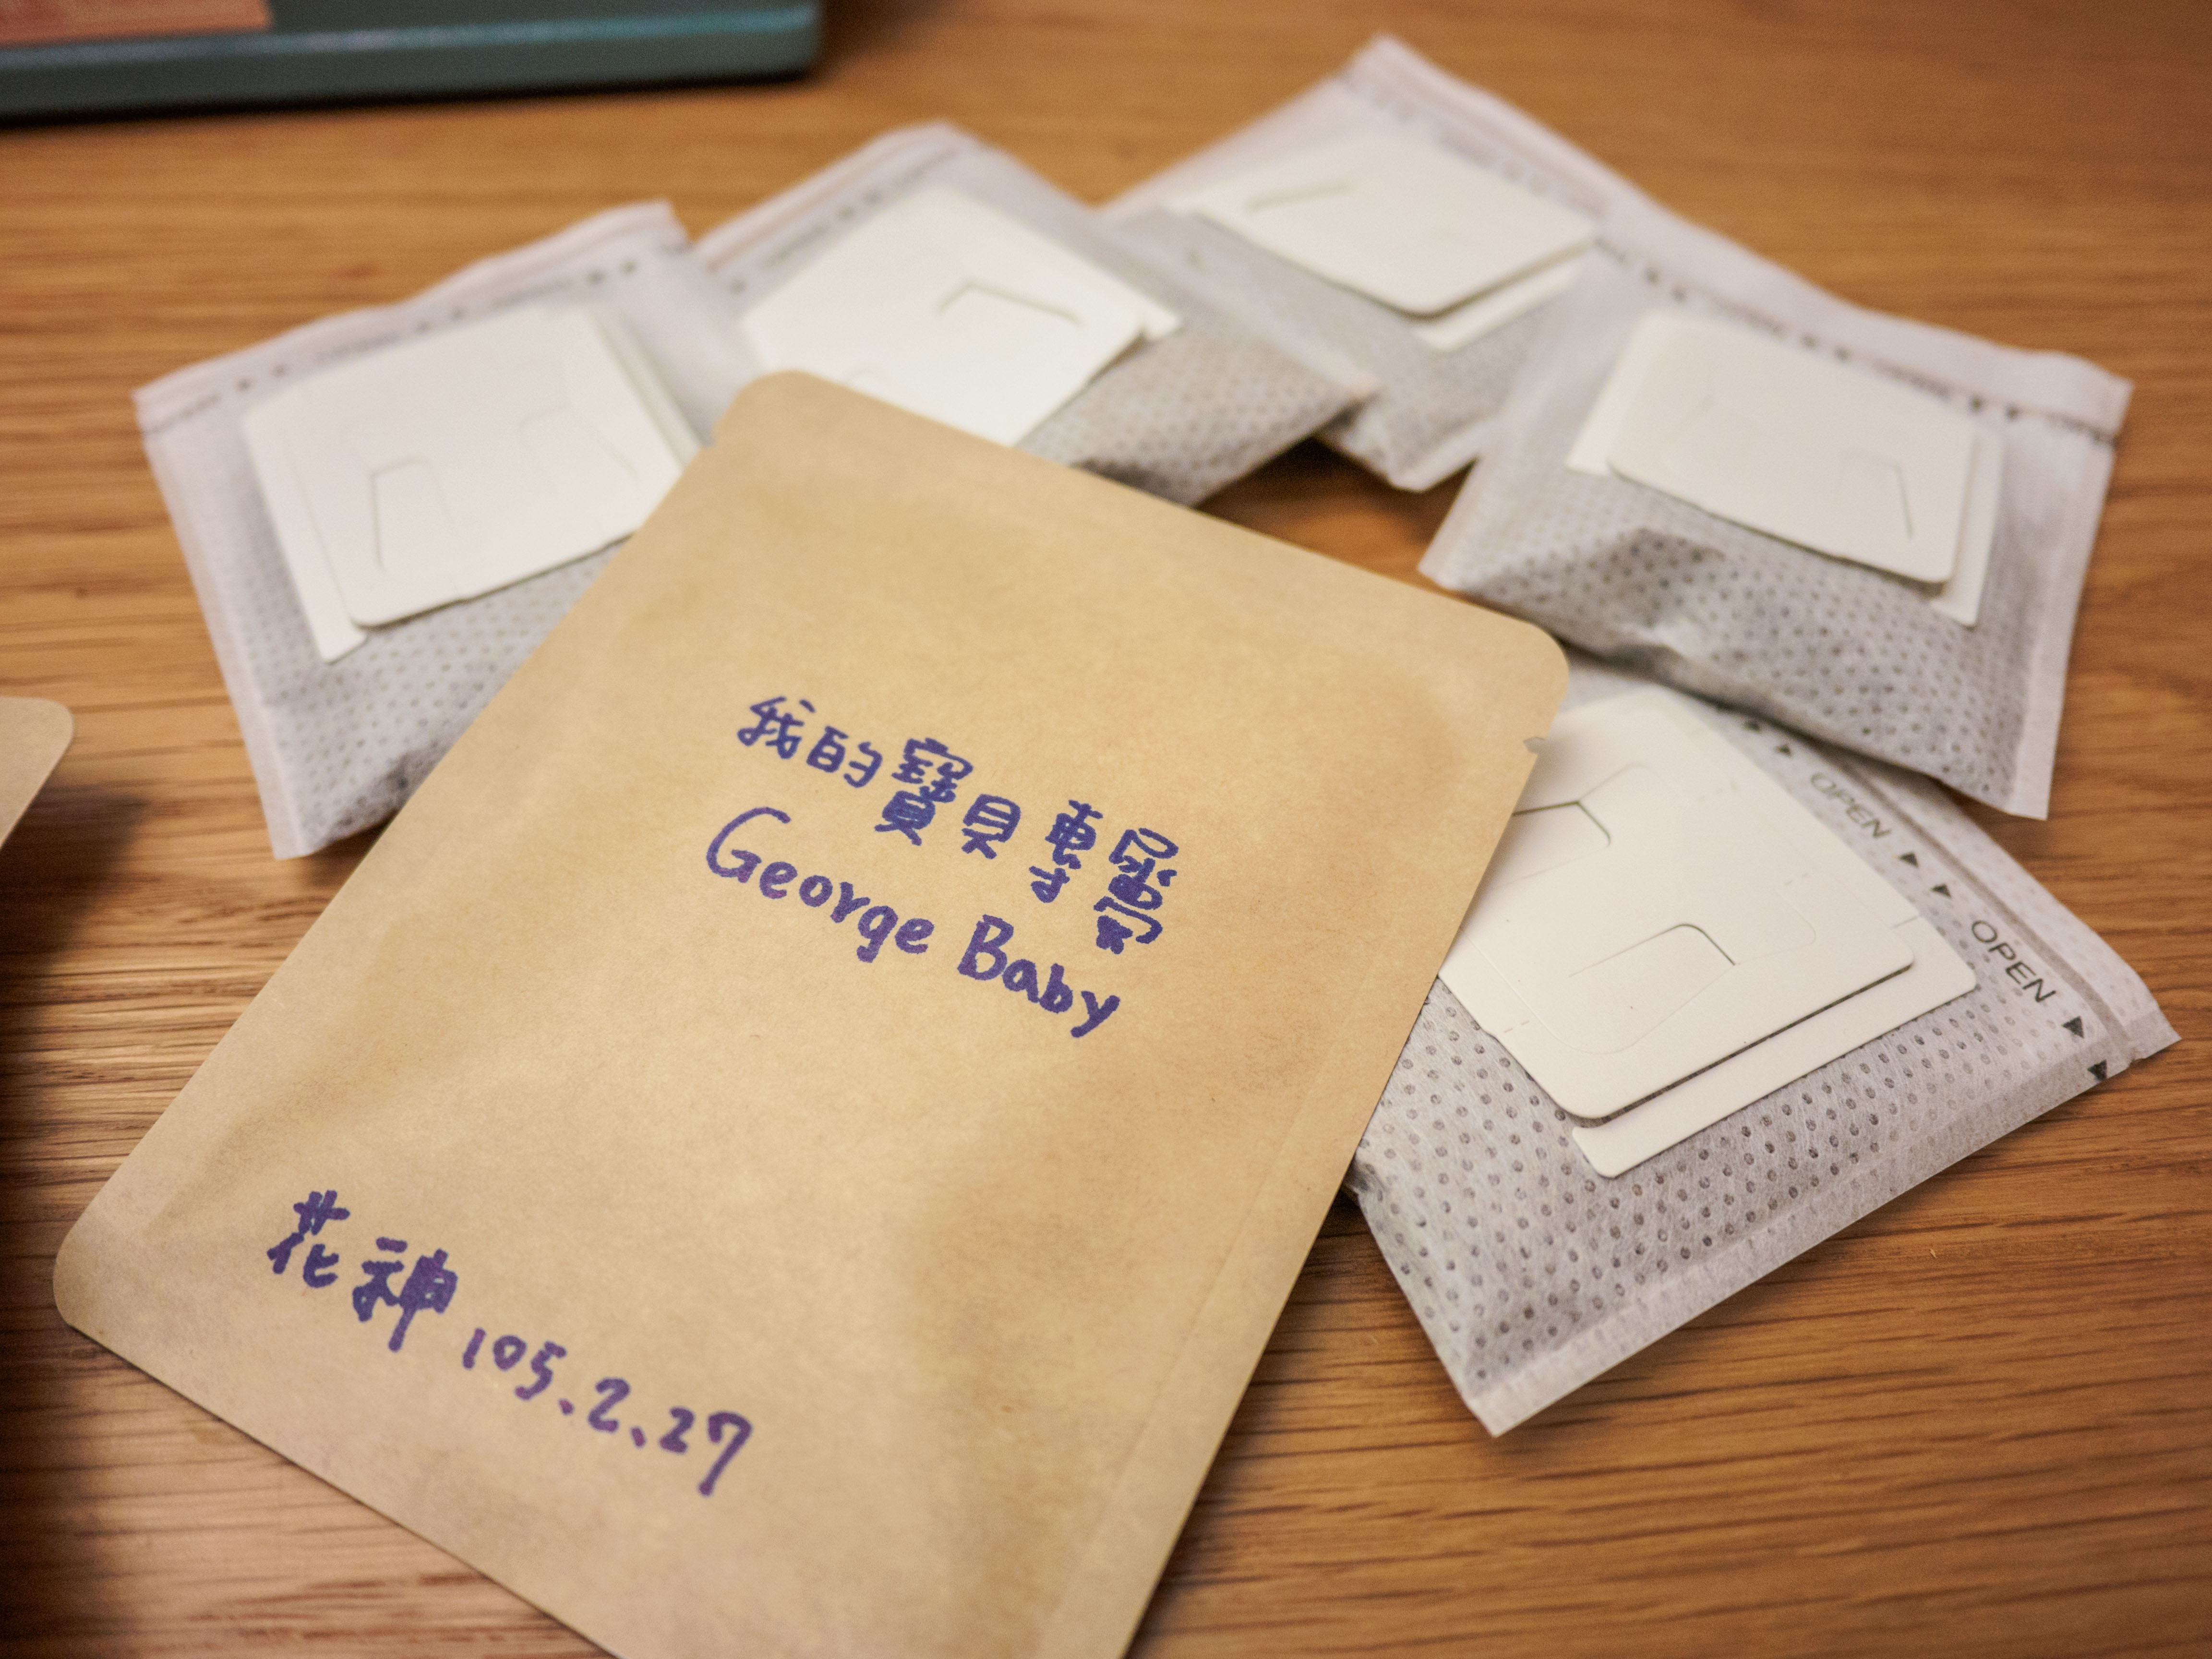 我的寶貝專屬
George Baby
花神 105.2.27
OPEN ▶ ▶ OPEN ▶